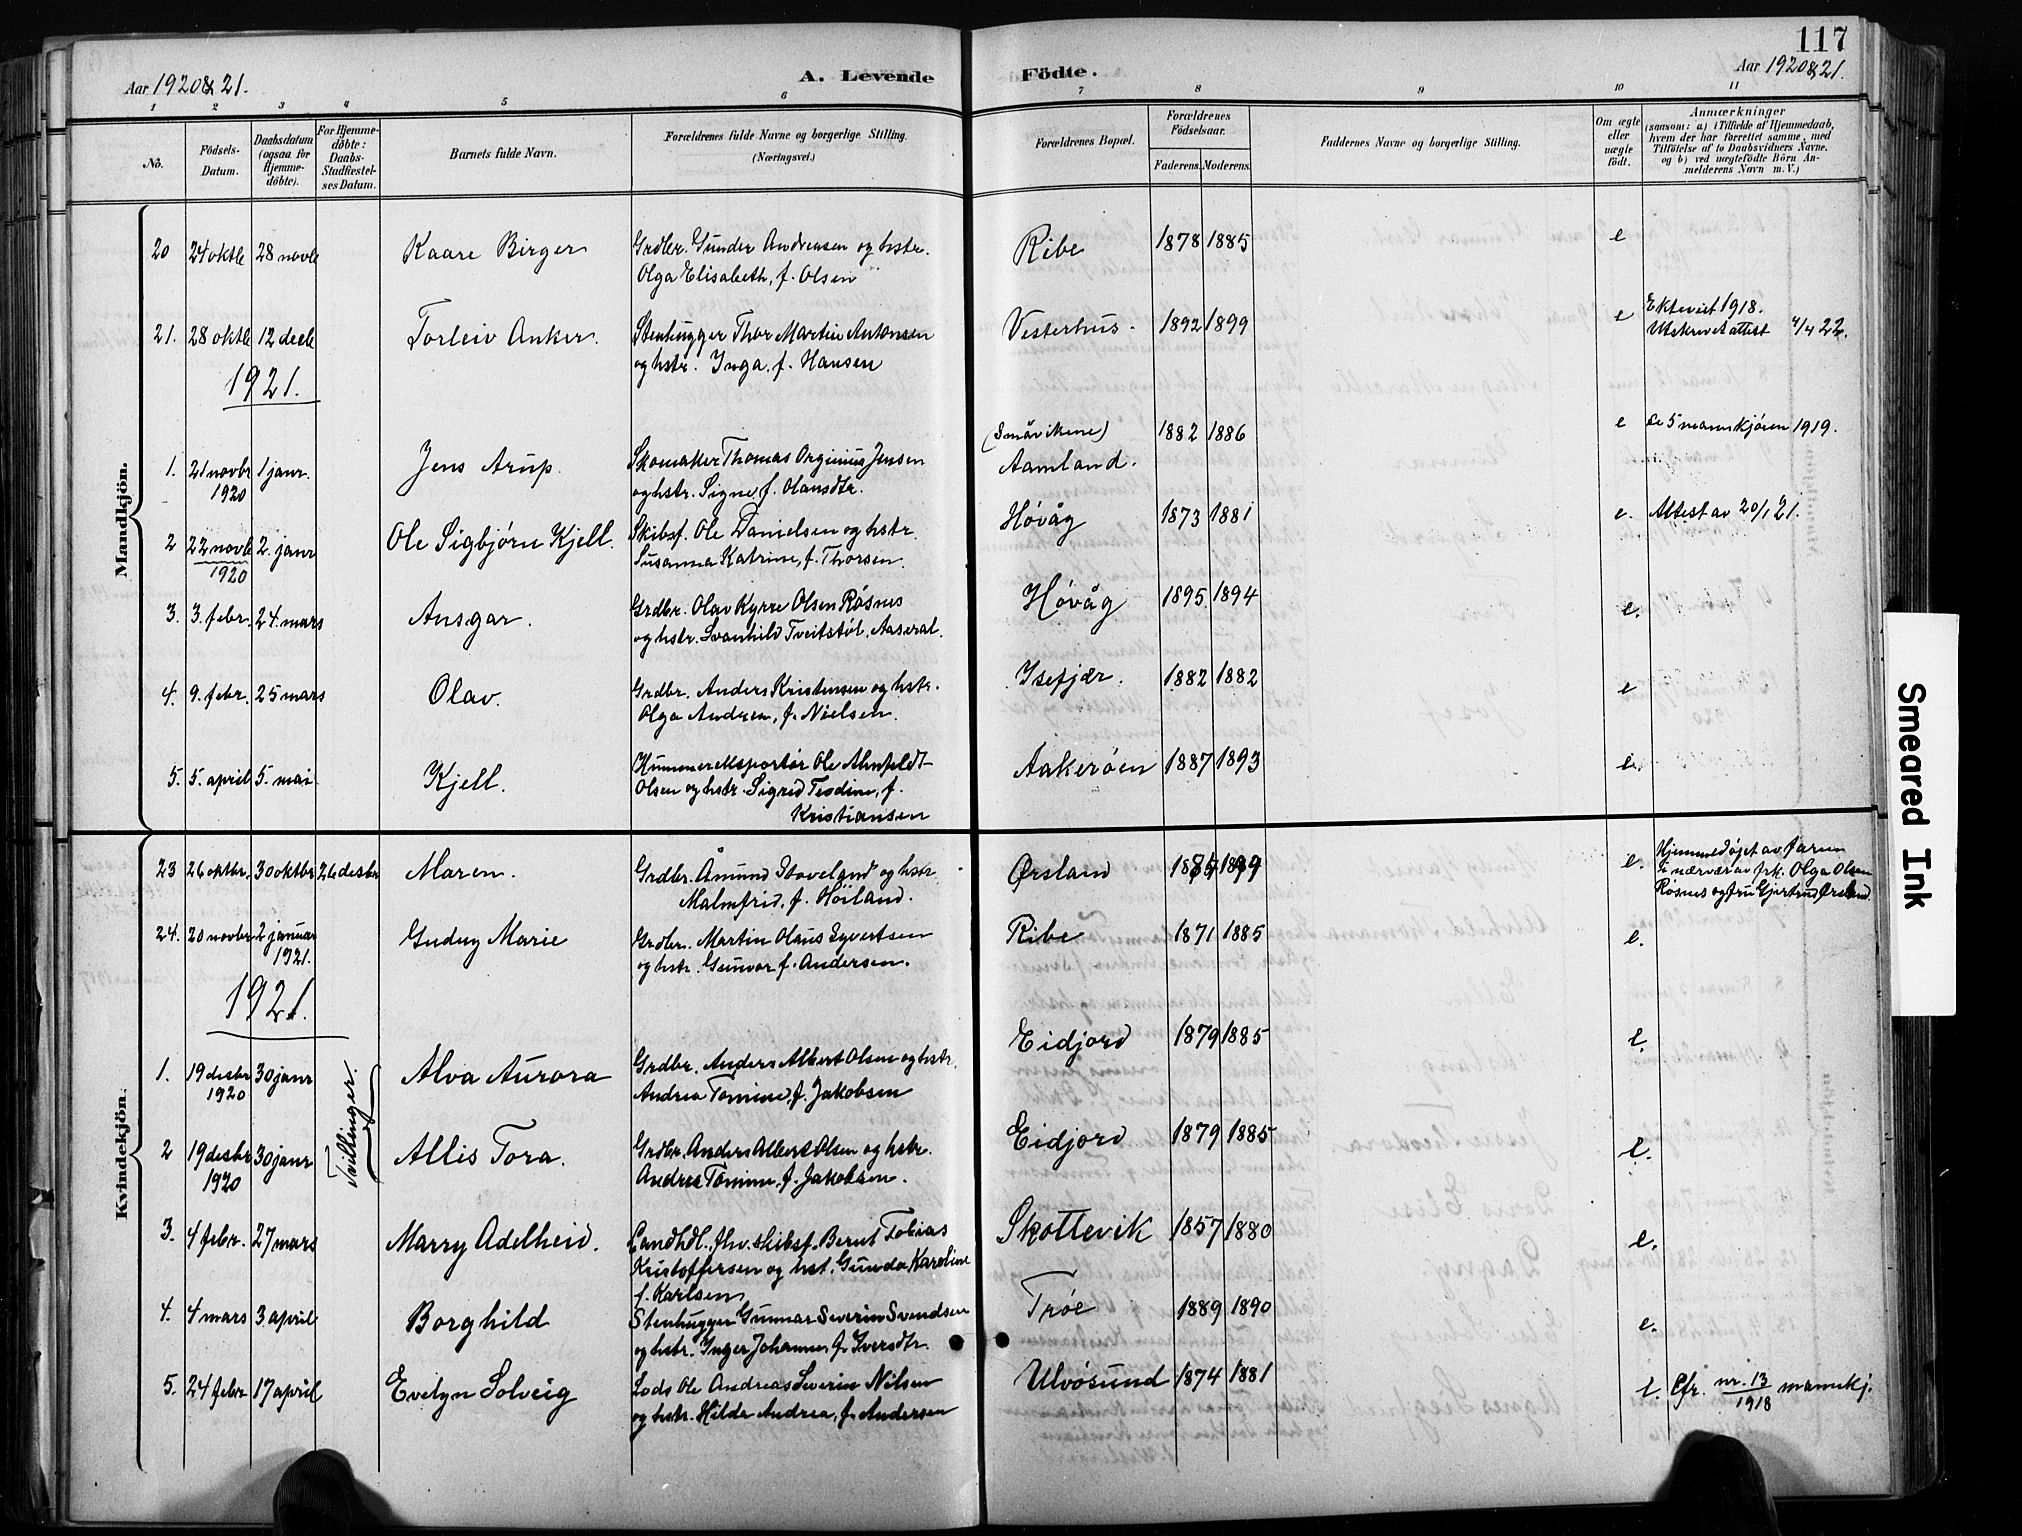 117
Aar 1920 & 21.
A. Levende Födte.
Aar 1920 & 21.
1 2 3 4 5 6 7 8 9 10 11
No. Födsels-Datum. Daabsdatum (ogsaa for Hjemme-döbte). For Hjemme-döbte: Daabs-Stadfæstel-ses Datum. Barnets fulde Navn. Forældrenes fulde Navne og borgerlige Stilling. (Næringsvei.) Forældrenes Bopæl. Forældrenes Födselsaar. Faderens. Moderens. Faddernes Navne og borgerlige Stilling. Om ægte eller uægte födt. Anmærkninger (saasom: a) i Tilfælde af Hjemmedaab, hvem der har forrettet samme, med Tilföielse af to Daabsvidners Navne, og b) ved uægtefödte Börn Anmelderens Navn m. V.)
Mandkjön.
20 24 oktb 28 novb Kaare Birger Grdbr. Gunder Andreasen og hstr. Ribe 1878 1885 e
Olga Elisabeth, f. Olsen
21. 28 oktb 12 decb Torleiv Anker. Stenhugger Thor Martin Antonsen Vesterhus. 1892 1899 e Ektevict 1918.
og hstr. Inga, f. Hansen Utskrevet attest 4/4 22.
1921.
1. 21 novbr 1 janr. Jens Arup. Skomaker Thomas Orginius Jensen (Småvikene) 1882 1886 e se 5 mannkjøen 1919.
1920 og hstr. Signe f. Olausdtr. Aamland.
2 22 novb 2. janr Ole Sigbjørn Kjell. Skibsf. Ole Danielsen og hstr. Høvåg 1873 1881 e. Attest av 20/1 21.
1920 Susanna Katrine, f. Thorsen.
3. 3. febr. 24. mars Ansgar. Grdbr. Olav Kyrre Olsen Røsnes Høvåg 1895 1894 e.
og hstr. Svanhild Tveitstøl, Aaseral.
4. 9. febr. 25 mars Olav. Grdbr. Anders Kristensen og hstr. Isefjær. 1882 1882 e
Olga Andrea, f. Nielsen.
5. 5. april 5. mai Kjell. Hummereksportør Ole Ahnfeldt- Aakerøen 1887 1893 e.
Olsen og hstr. Sigrid Teodine, f.
Kristiansen
Kvindekjön.
23 26 oktbr. 30 oktbr 26 desbr Maren. Grdbr. Åmund Stoveland og hstr. Ørsland e. Hjemmedøpt av faren
Malmfrid, f. Höiland. i nærvær av frk. Olga Olsen
Røsnes og fru Gjertrud Ørsland.
24. 20 novbr 2 januar Gudny Marie Grdbr. Martin Olaus Syvertsen Ribe 1871 1885 e.
1921. og hstr. Gunvor f. Andersen.
1921.
1. 19 desbr 30 janr Tvillinger. Alva Aurora Grdbr. Anders Albert Olsen og hstr. Eidjord 1879 1885 e.
1920 Andrea Tomine, f. Jakobsen
2 19 desbr 30 janr Allis Tora. Grdbr. Anders Albert Olsen og hstr. Eidjord 1879 1885 e.
1920 Andrea Tomine, f. Jakobsen.
3. 4 febr. 27 mars Marry Adelheid. Landhdl. fhv. skibsf. Bernt Tobias Skottevik 1857 1880 e.
Kristoffersen og hst. Gunda Karoline
f. Karlsen
4. 4 mars 3 april Borghild Stenhugger Gunnar Severin Svendsen Trøe 1889 1890 e.
og hstr. Inger Johanne, f. Iversdtr.
5. 24 febr. 17 april Evelyn Solveig Lods Ole Andreas Severin Nilsen Ulvøsund 1874 1881 e. Cfr. nr. 13/1918 mannkj.
og hstr. Hilda Andrea, f. Andersen
Smeared Ink